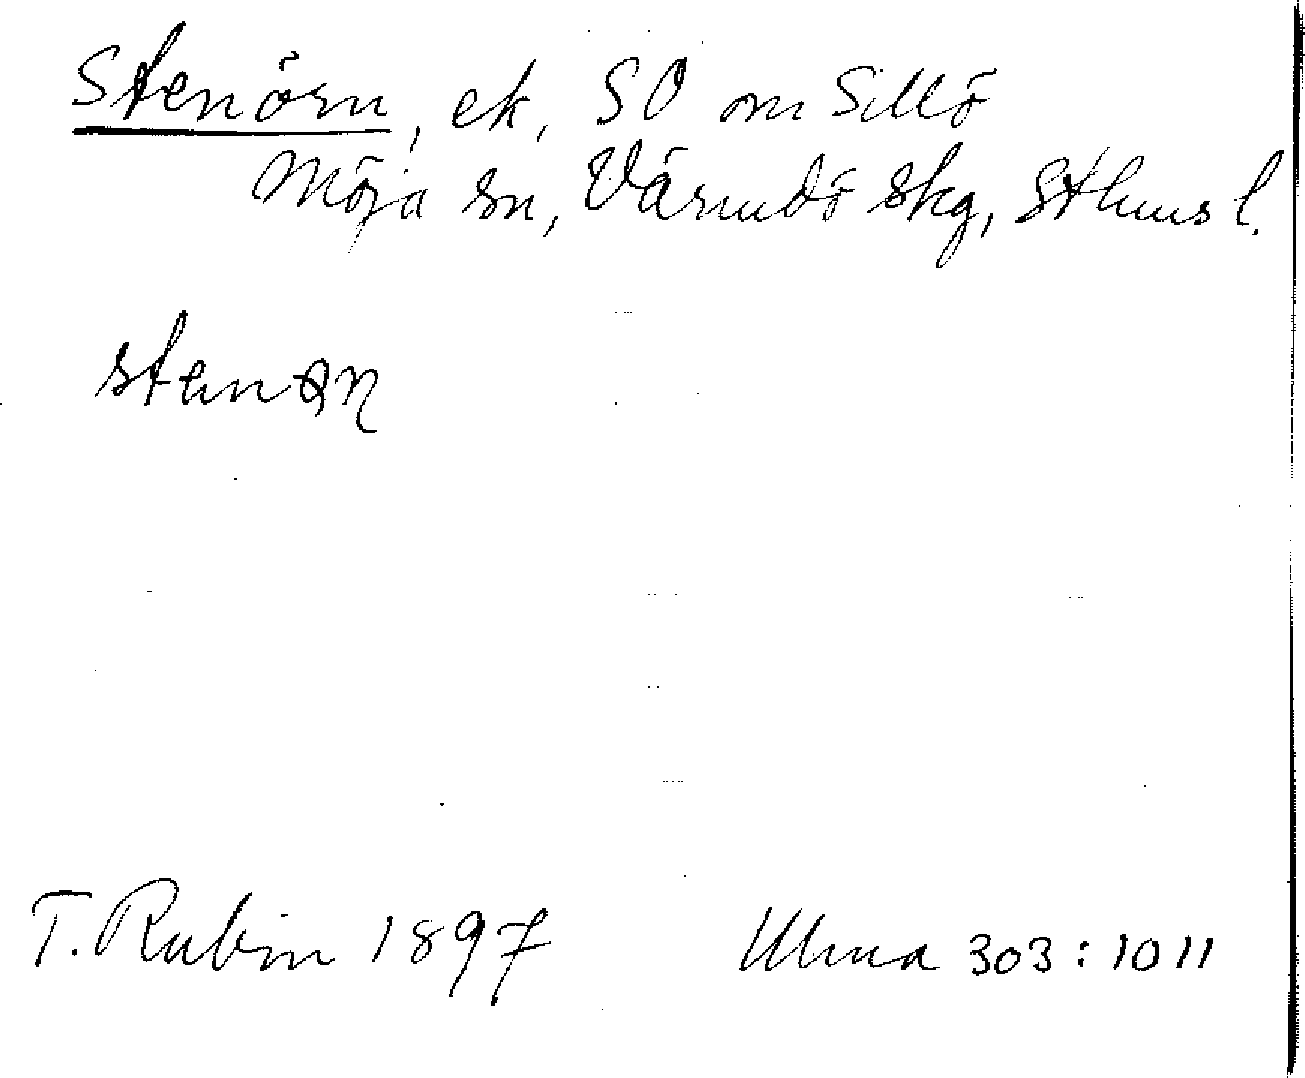 Stenörn, ek, SO om Sillö
Möja sn, Värmdö skg, Sthms l.
T. Rubin 1897
Ulma 303:1011